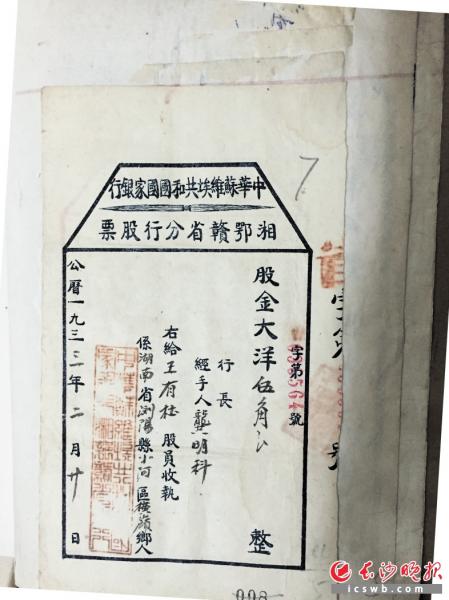 中華蘇維埃共和國國家銀行
湘鄂贛省分行股票
字第 號
股金大洋伍角 整
行長
經手人龔明科
右給王有杜股員收執
係湖南省瀏陽縣小河區橫嶺鄉人
公曆一九三三年二月廿日
7
長沙晚报
icswb.com